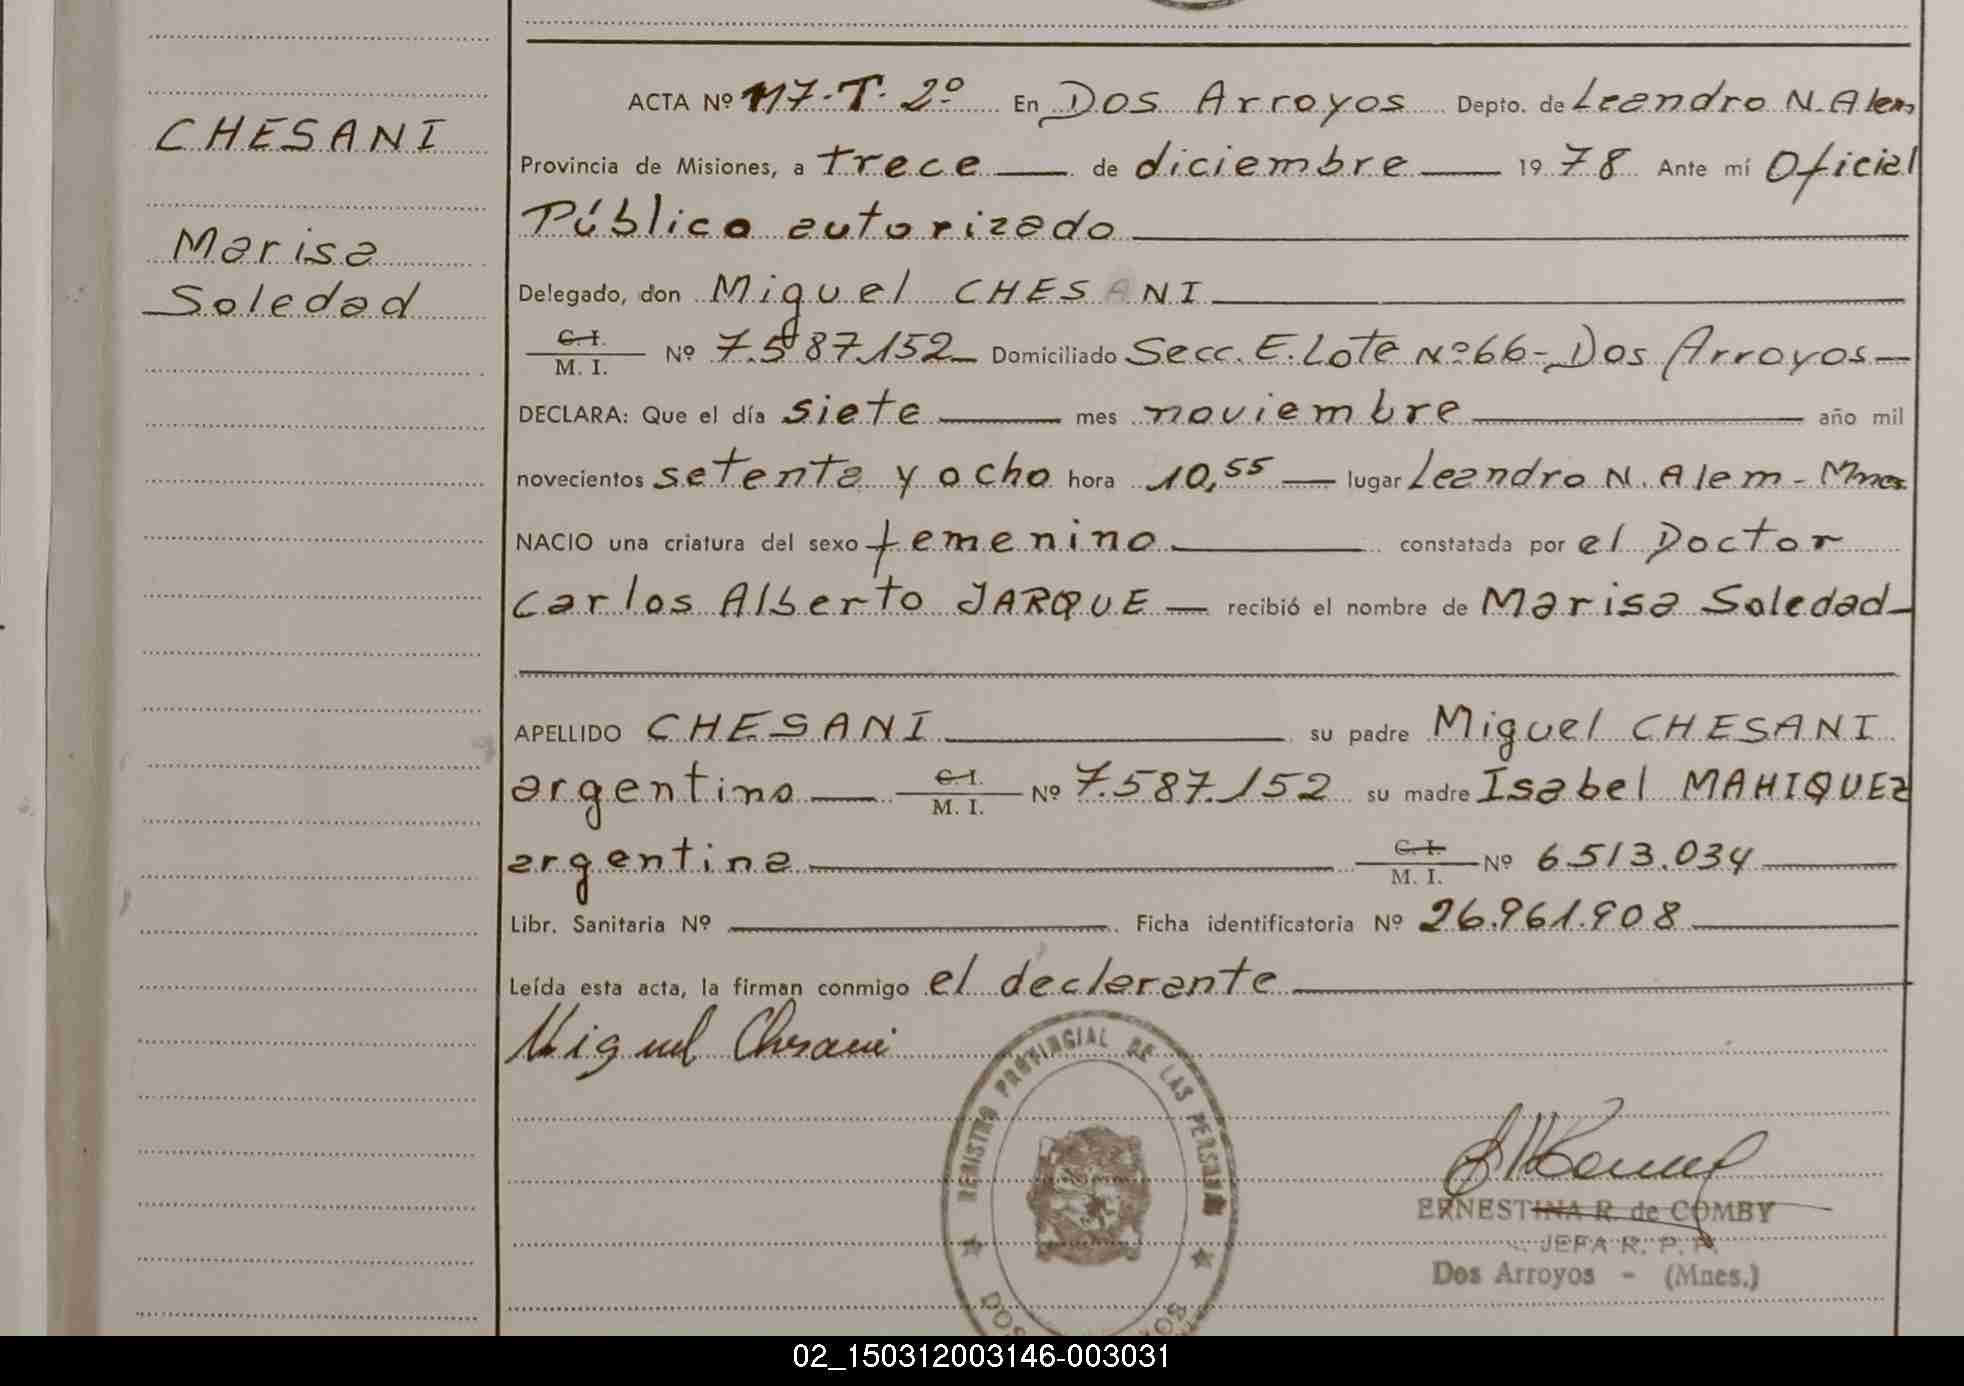 CHESANI
Marisa
Soledad
ACTA Nº 117-T-2º En Dos Arroyos Depto. de Leandro N. Alem
Provincia de Misiones, a trece de diciembre 1978 Ante mí Oficial
Público autorizado
Delegado, don Miguel CHESANI
C. I.
M. I. Nº 7.587.152 Domiciliado Secc. E. Lote Nº 66 - Dos Arroyos
DECLARA: Que el día siete mes noviembre año mil
novecientos setenta y ocho hora 10,55 lugar Leandro N. Alem - Mnes.
NACIO una criatura del sexo femenino constatada por el Doctor
Carlos Alberto JARQUE recibió el nombre de Marisa Soledad
APELLIDO CHESANI su padre Miguel CHESANI
argentino C. I.
M. I. Nº 7.587.152 su madre Isabel MAHIQUEz
argentina C. I.
M. I. Nº 6.513.034
Libr. Sanitaria Nº Ficha identificatoria Nº 26.961.908
Leída esta acta, la firman conmigo el declarante
Miguel Chesani
REGISTRO PROVINCIAL DE LAS PERSONAS
ERNESTINA R. de COMBY
JEFA R. P. P.
Dos Arroyos - (Mnes.)
02_150312003146-003031